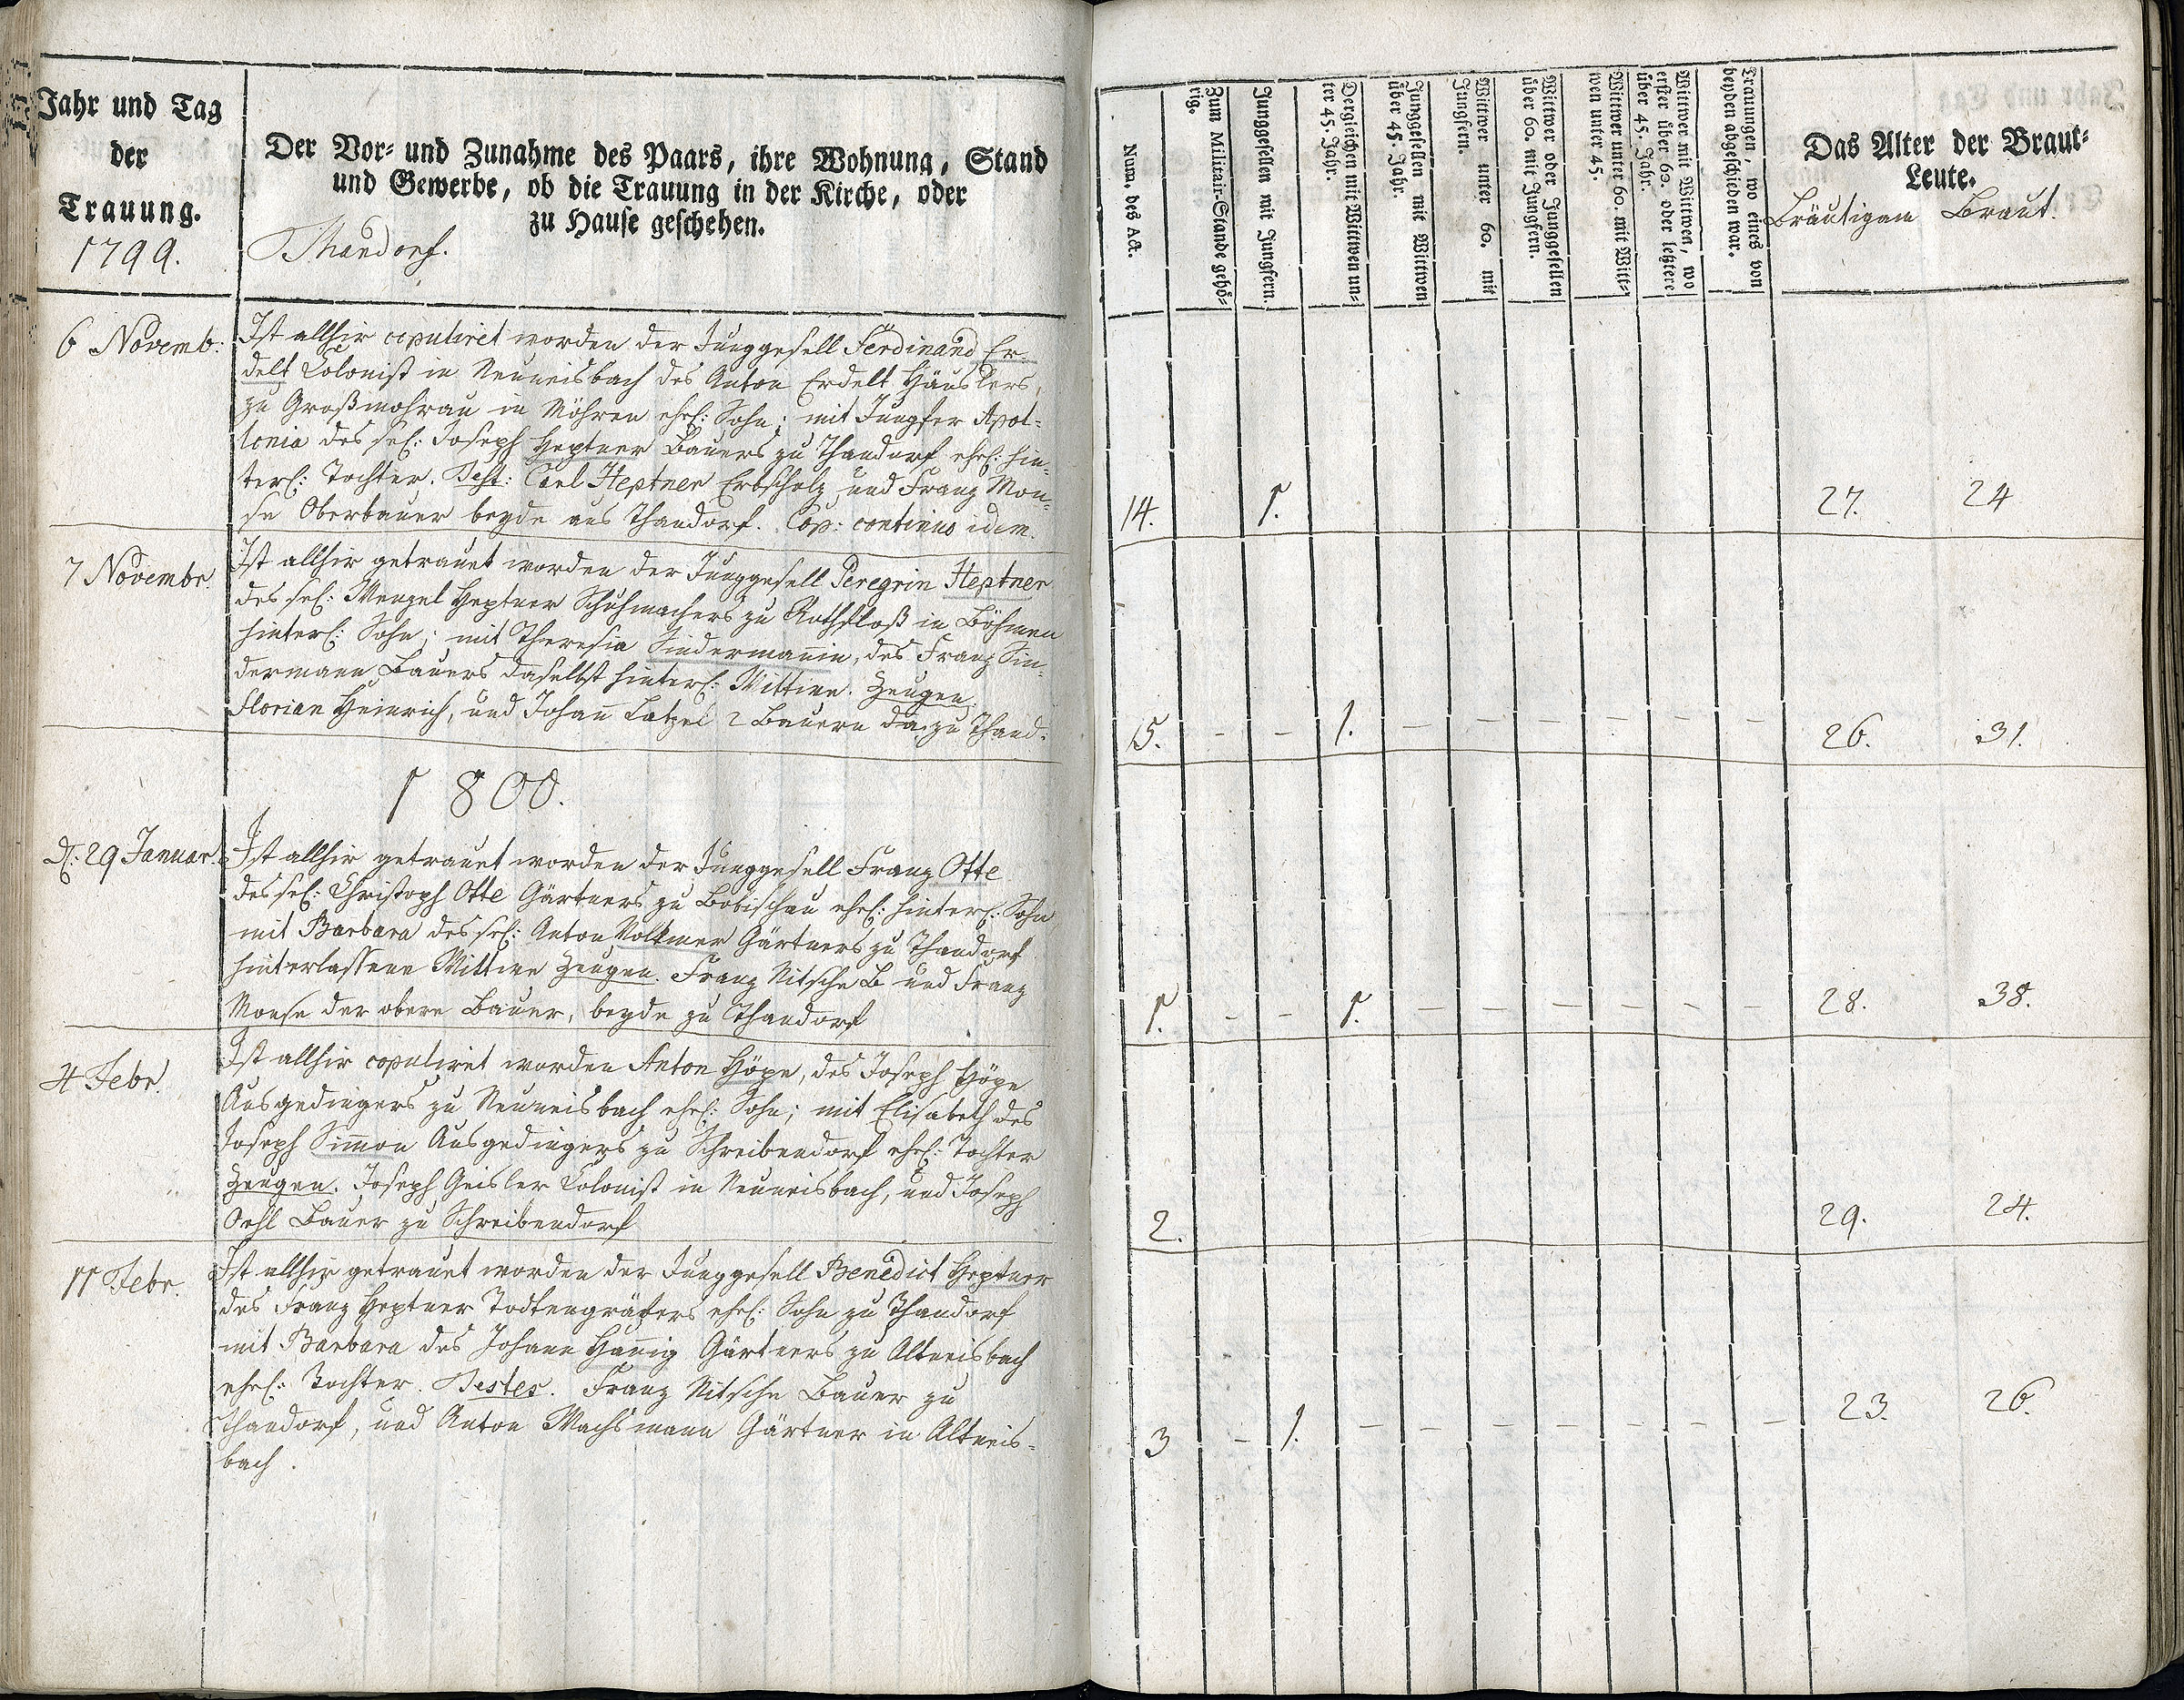 Jahr und Tag
der
Trauung.
1799.
Der Vor- und Zunahme des Paars, ihre Wohnung, Stand
und Gewerbe, ob die Trauung in der Kirche, oder
zu Hause geschehen.
Thandorf.
6 Novemb:
Ist allhir copuliret worden der Junggesell Ferdinand Er-
delt Colonist in Neuneisbach des Anton Erdelt Häuslers,
zu Großmohrau in Möhren ehel: Sohn; mit Jungfer Apol-
lonia des sel: Joseph Heptner Bauers zu Thandorf ehel: hin-
terl: Tochter. Test: Carl Heptner Erbscholz und Franz Mon-
se Oberbauer beyde aus Thandorf. Cop: continuo idem.
7 Novembr.
Ist allhir getrauet worden der Junggesell Peregrin Heptner
des sel: Wenzel Heptner Schuhmachers zu Rothfloß in Böhmen
hinterl: Sohn; mit Theresia Sindermanin, des Franz Sin-
dermann Bauers daselbst hinterl: Wittwe. Zeugen.
Florian Heinrich, und Johan Latzel 2 Bauern da zu Thand.
1800.
d: 29 Januar.
Ist allhir getrauet worden der Junggesell Franz Otte
des sel: Christoph Otte Gärtners zu Bobischau ehel: hinterl: Sohn
mit Barbara des sel: Anton Volkmer Gärtners zu Thandorf
hinterlassene Wittwe Zeugen. Franz Nitsche B und Franz
Monse der obere Bauer, beyde zu Thandorf
4 Febr.
Ist allhir copuliret worden Anton Höpe, des Joseph Höpe
Ausgedingers zu Neuneisbach ehel: Sohn; mit Elisabeth des
Joseph Simon Ausgedingers zu Schreibendorf ehel: Tochter
Zeugen. Joseph Geisler Colonist in Neuneisbach, und Joseph
Oehl Bauer zu Schreibendorf
11 Febr.
Ist allhir getrauet worden der Junggesell Benedict Heptner
des Franz Heptner Todtengräbers ehel: Sohn zu Thandorf
mit Barbara des Johann Hanig Gärtners zu Altneisbach
ehel: Tochter. Testes. Franz Nitsche Bauer zu
Thandorf, und Anton Wachsmann Gärtner in Altneis-
bach.
Num. des Act.
Zum Militair-Stande gehö-
rig.
Junggesellen mit Jungfern.
Dergleichen mit Wittwen un-
ter 45. Jahr.
Junggesellen mit Wittwen
über 45. Jahr.
Wittwer unter 60. mit
Jungfern.
Wittwer oder Junggesellen
über 60. mit Jungfern.
Wittwer unter 60. mit Witt-
wen unter 45.
Wittwer mit Wittwen, wo
erster über 60. oder letztere
über 45. Jahr.
Trauungen, wo eines von
beyden abgeschieden war.
Das Alter der Braut-
Leute.
Bräutigam Braut.
14. 1. 27. 24
15. - - 1. - - - - - - 26. 31.
1. - - 1. - - - - - - 28. 38.
2. 29. 24.
3 - 1. - - - - - - - 23. 26.